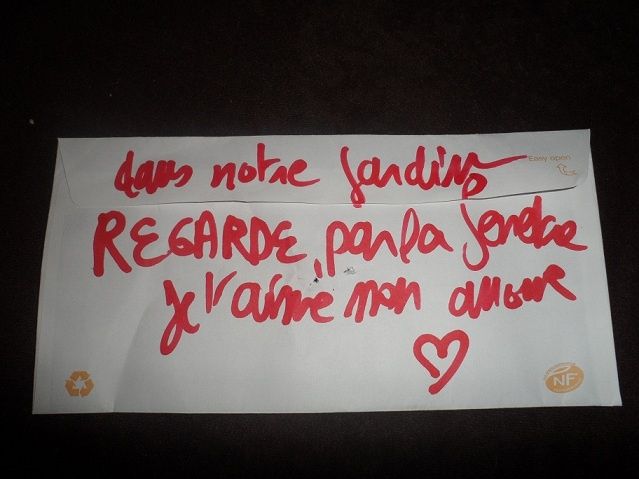 dans notre jardin
Easy open
REGARDE par la fenetre
je t'aime mon amour
NF